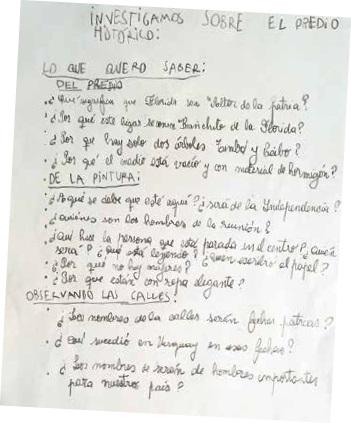 INVESTIGAMOS SOBRE EL PREDIO
HISTÓRICO:
LO QUE QUERO SABER:
DEL PREDIO
. ¿Qué significa que Florida sea "Altar de la patria?
. ¿Por qué este lugar se conoce "Banchito de la Florida?
. ¿Por que hay solo dos árboles Tambo y Ceibo?
. ¿Por qé el medio está vacío y con material de hormigón?
. DE LA PINTURA:
. ¿A qué se debe que esté aquí? ¿será de la Independencia?
. ¿Quiénes son los hombres de la reunión?
. ¿Qué hace la persona que está parada en el centro? ¿Quién
será? ¿Qué está leyendo? ¿Quién escribió el papel?
. ¿Por qué no hay mujeres?
. ¿Por que están con ropa elegante?
OBSERVANDO LAS CALLES:
. ¿Los nombres de la calles serán fechas patrias?
. ¿Qué sucedió en Uruguay en esas fechas?
. ¿Los nombres se serán de hombres importantes
para nuestro país?